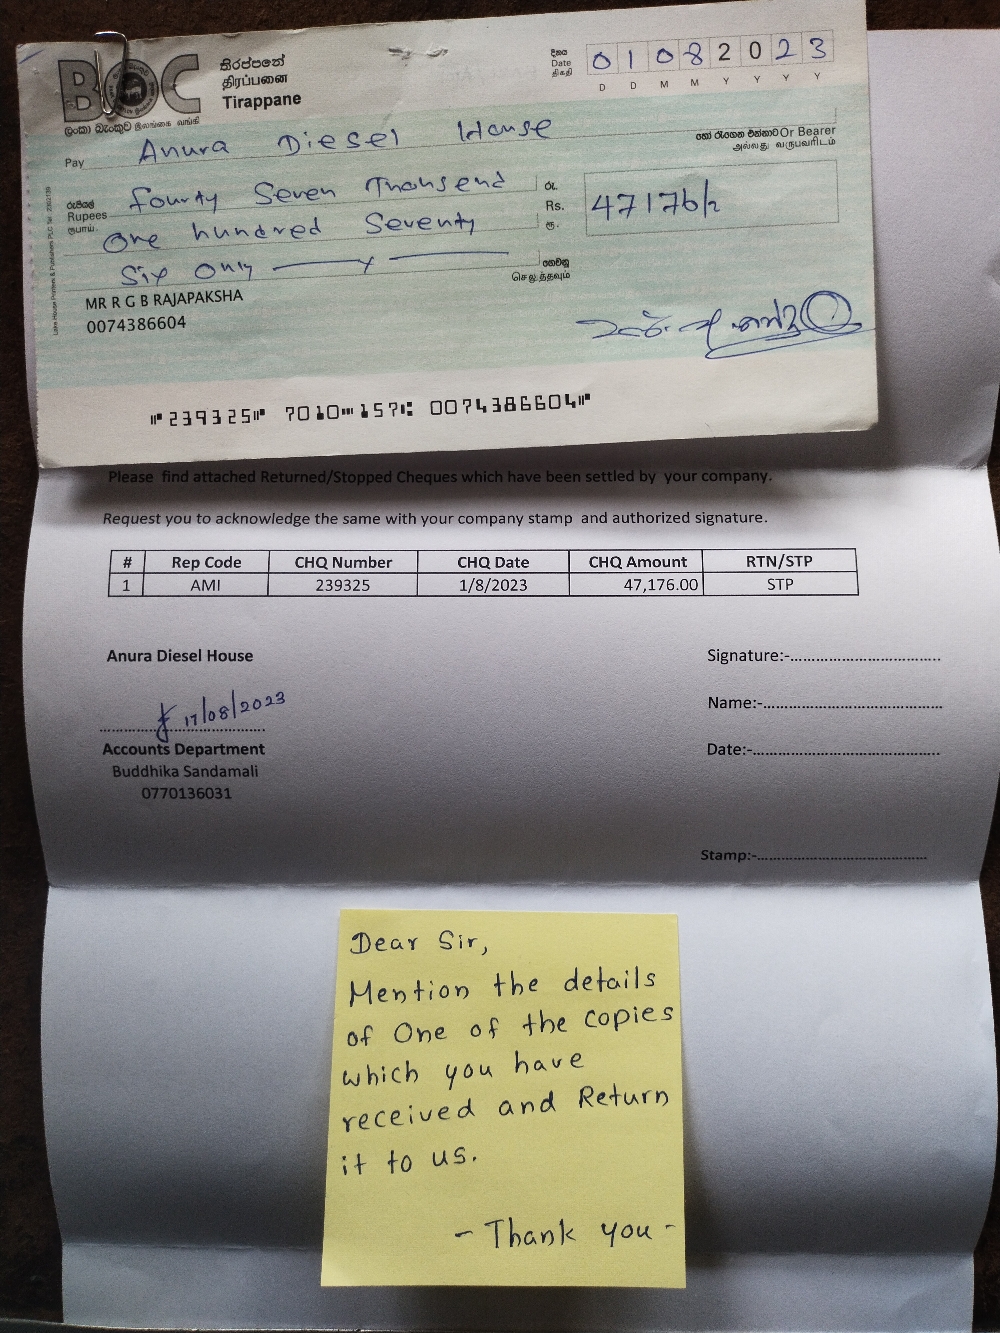 BOC
ලංකා බැංකුව இலங்கை வங்கி
තිරප්පනේ
திரப்பனை
Tirappane
දිනය
Date
திகதி
0 1 0 8 2 0 2 3
D D M M Y Y Y Y
Pay Anura Diesel House
හෝ රැගෙන එන්නාට Or Bearer
அல்லது வருபவரிடம்
රුපියල්
Rupees
ரூபாய்
fourty Seven Thousend
One hundred Seventy
Six Only
රු.
Rs.
ரூ.
47176/=
ගෙවනු
செலுத்தவும்
MR R G B RAJAPAKSHA
0074386604
Lake House Printers & Publishers PLC
⑈239325⑈ 7010⑉157⑆ 0074386604⑈
Please find attached Returned/Stopped Cheques which have been settled by your company.
Request you to acknowledge the same with your company stamp and authorized signature.
# Rep Code CHQ Number CHQ Date CHQ Amount RTN/STP
1 AMI 239325 1/8/2023 47,176.00 STP
Anura Diesel House
Signature:-
17/08/2023
Name:-
Accounts Department
Date:-
Buddhika Sandamali
0770136031
Stamp:-
Dear Sir,
Mention the details
of One of the copies
which you have
received and Return
it to us.
- Thank you -